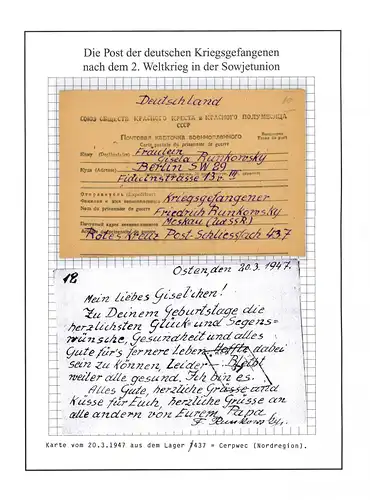 Die Post der deutschen Kriegsgefangenen
nach dem 2. Weltkrieg in der Sowjetunion
Deutschland
СОЮЗ ОБЩЕСТВ КРАСНОГО КРЕСТА и КРАСНОГО ПОЛУМЕСЯЦА
СССР
Почтовая карточка военнопленного
Carte postale du prisonnier de guerre
Кому (Destinataire) Fräulein
Gisela Runkowsky
Куда (Adresse) Berlin SW 29
Fidicinstrasse 13 III
Отправитель (Expéditeur)
Фамилия и имя военнопленного Kriegsgefangener
Nom du prisonnier de guerre Friedrich Runkowsky
Почтовый адрес военнопленного Moskau (UdSSR)
Rotes Kreuz Post-Schliessfach 437
Osten, den 20.3.1947.
12
Mein liebes Giselchen!
Zu Deinem Geburtstage die
herzlichsten Glück- und Segens-
wünsche, Gesundheit und alles
Gute für's fernere Leben. Hoffte dabei
sein zu können, Leider. Bleibt
weiter alle gesund. Ich bin es.
Alles Gute, herzliche Grüsse und
Küsse für Euch, herzliche Grüsse an
alle andern von Eurem Papa
F. Runkowsky.
Karte vom 20.3.1947 aus dem Lager 7437 = Cerpwec (Nordregion).